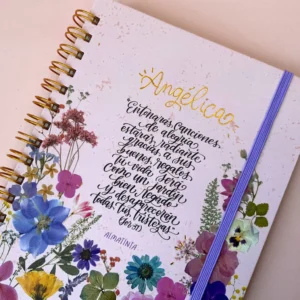 Angélica
"Entonarás canciones
de alegría,
estarás radiante
gracias a sus
buenos regalos.
Tu vida será
como un jardín
bien regado
y desaparecerán
todas tus tristezas"
(Jer. 31)
ALMATINTA